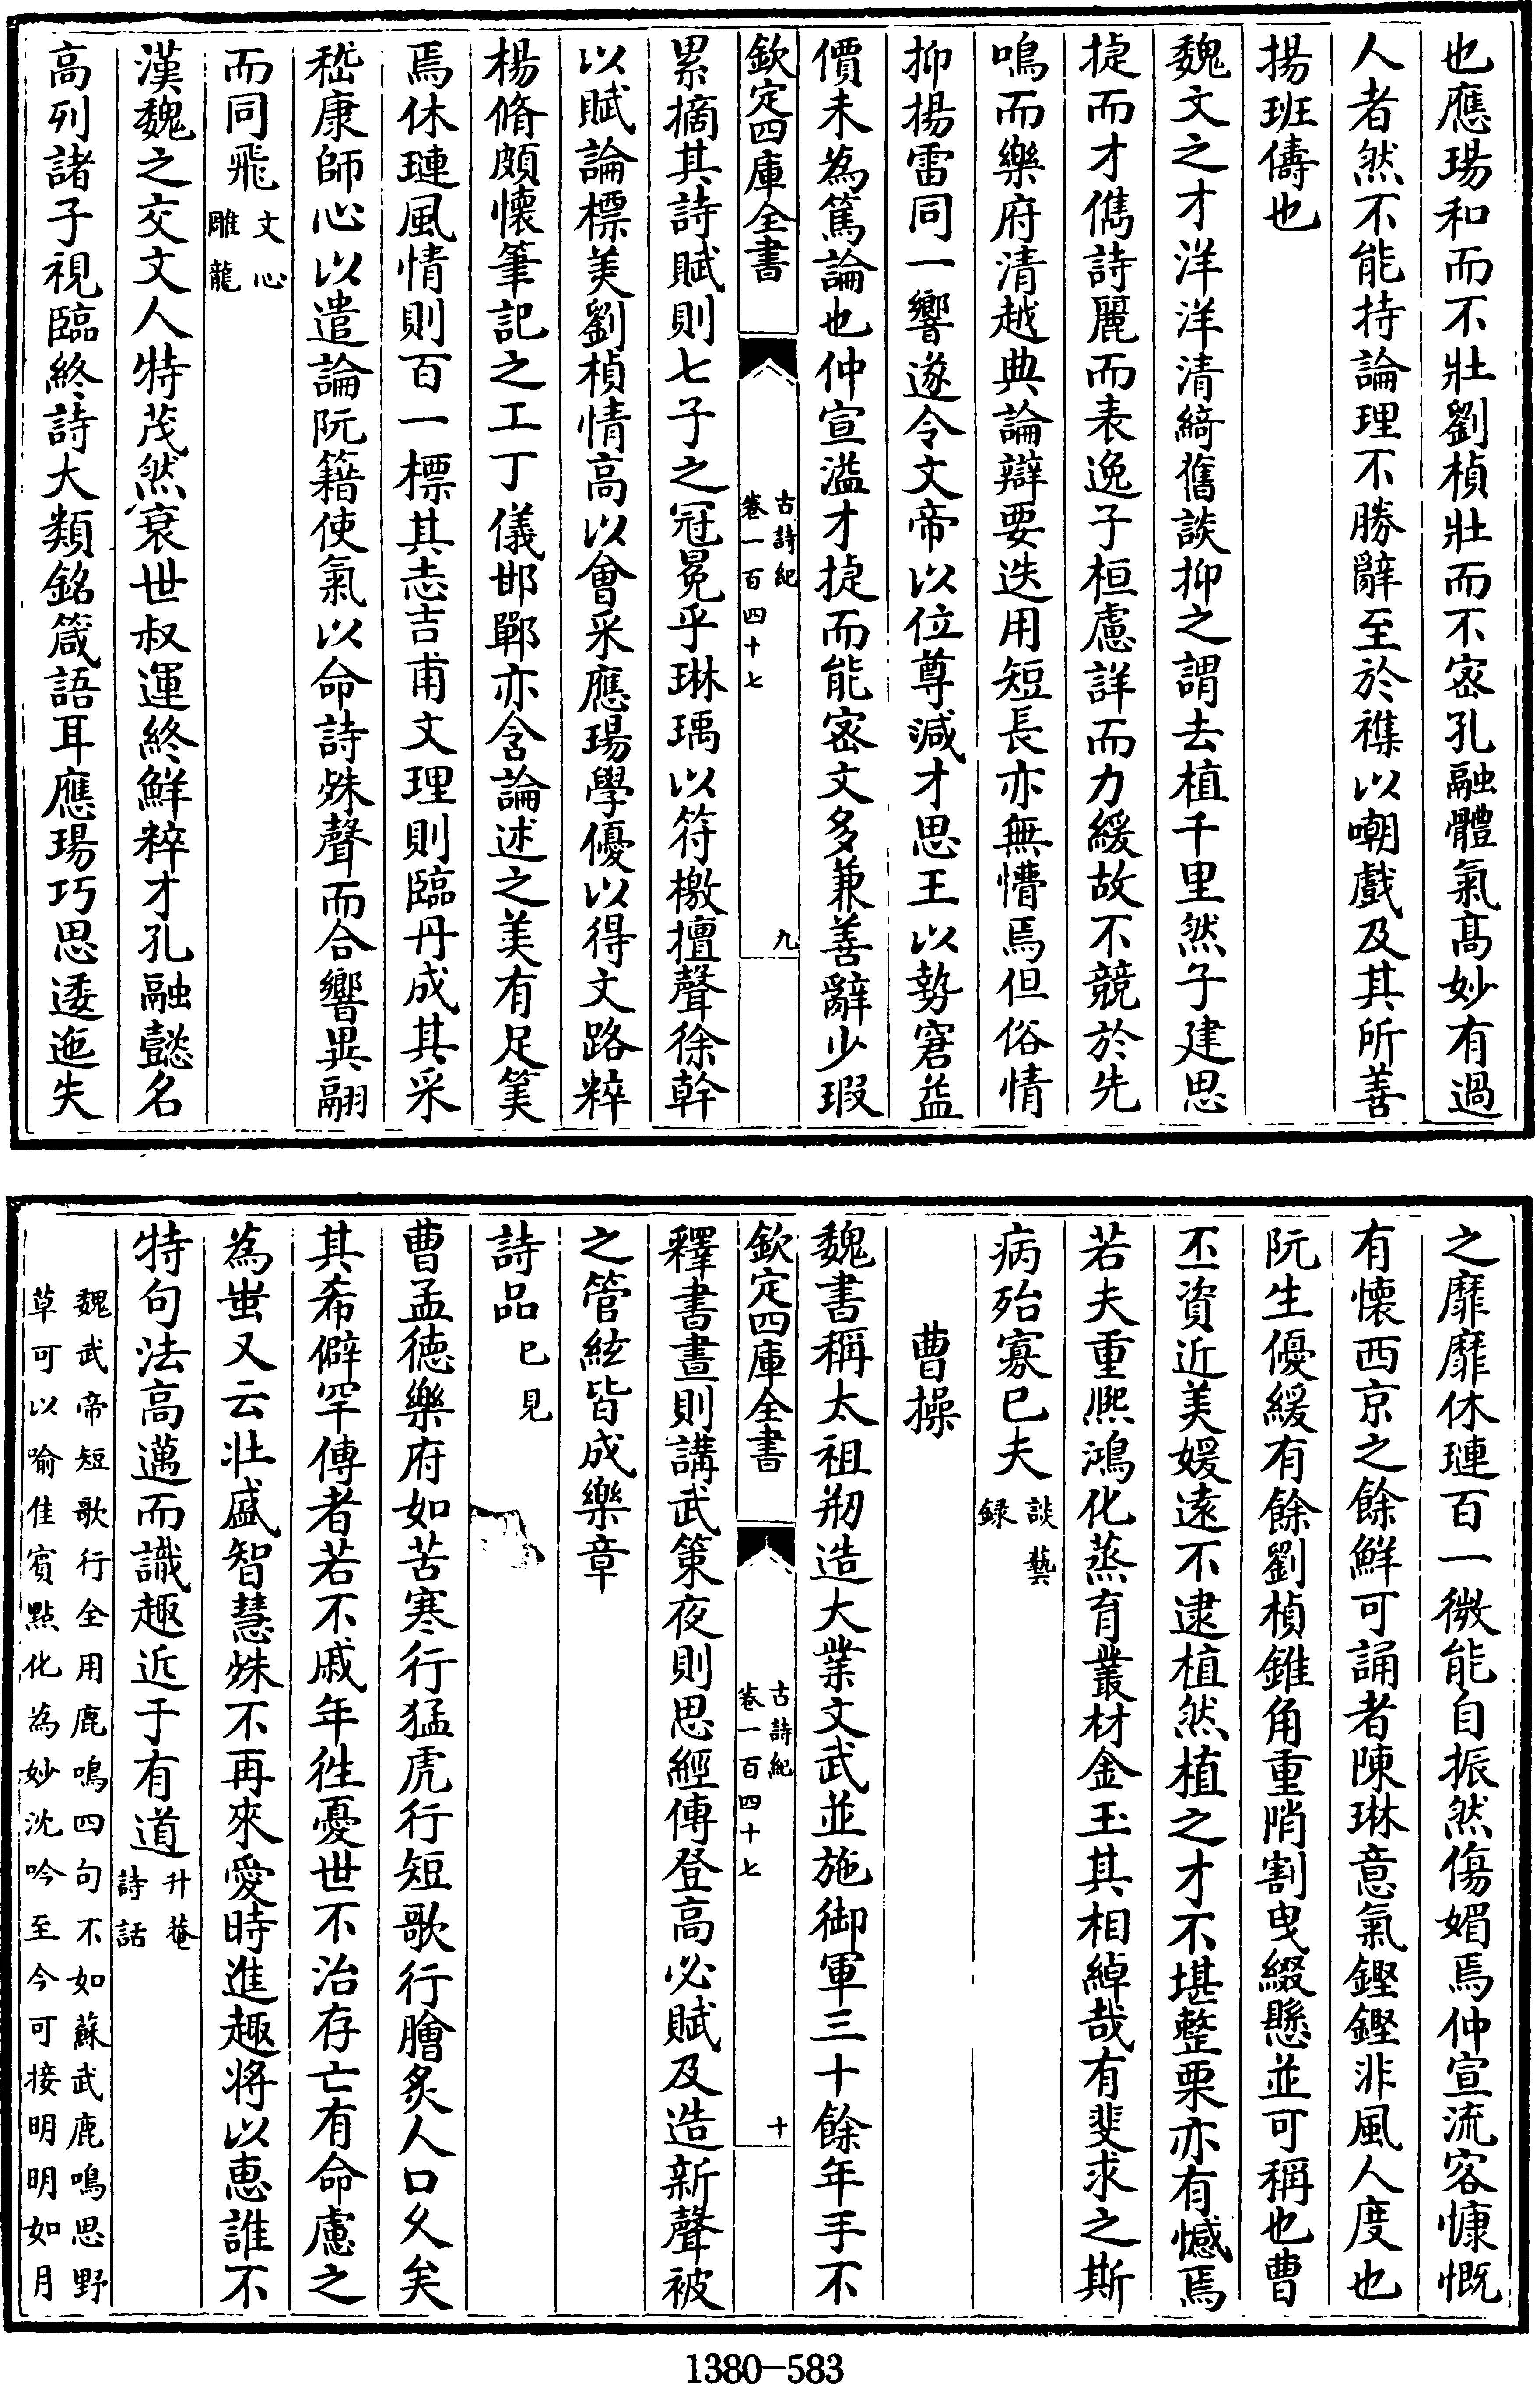 也應瑒和而不壯劉楨壯而不密孔融體氣髙妙有過
人者然不能持論理不勝辭至於襍以嘲戲及其所善
揚班儔也
魏文之才洋洋清綺舊談抑之謂去植千里然子建思
捷而才儁詩麗而表逸子桓慮詳而力緩故不競於先
鳴而樂府清越典論辯要迭用短長亦無懵焉但俗情
抑揚雷同一響遂令文帝以位尊減才思王以勢窘益
價未為篤論也仲宣溢才捷而能密文多兼善辭少瑕
欽定四庫全書
古詩紀
卷一百四十七
九
累摘其詩賦則七子之冠冕乎琳瑀以符檄擅聲徐幹
以賦論標美劉楨情高以會采應瑒學優以得文路粹
楊脩頗懷筆記之工丁儀邯鄲亦含論述之美有足筭
焉休璉風情則百一標其志吉甫文理則臨丹成其采
嵇康師心以遣論阮籍使氣以命詩殊聲而合響異翮
而同飛文心
雕龍
漢魏之交文人特茂然衰世叔運終鮮粹才孔融懿名
高列諸子視臨終詩大類銘箴語耳應瑒巧思逶迤失
之靡靡休璉百一微能自振然傷媚焉仲宣流客慷慨
有懷西京之餘鮮可誦者陳琳意氣鏗鏗非風人度也
阮生優緩有餘劉楨錐角重陗割曳綴懸並可稱也曹
丕資近美媛逺不逮植然植之才不堪整栗亦有憾焉
若夫重熈鴻化蒸育叢材金玉其相綽哉有斐求之斯
病殆寡已夫談藝
録
曹操
魏書稱太祖剏造大業文武並施御軍三十餘年手不
欽定四庫全書
古詩紀
卷一百四十七
十
釋書晝則講武策夜則思經傳登高必賦及造新聲被
之管絃皆成樂章
詩品已見
曹孟徳樂府如苦寒行猛虎行短歌行膾炙人口久矣
其希僻罕傳者若不戚年徃憂世不治存亡有命慮之
為蚩又云壯盛智慧殊不再來愛時進趣将以恵誰不
特句法高邁而識趣近于有道升菴
詩話
魏武帝短歌行全用鹿鳴四句不如蘇武鹿鳴思野
草可以喻佳賓㸃化為妙沈吟至今可接明明如月
1380-583